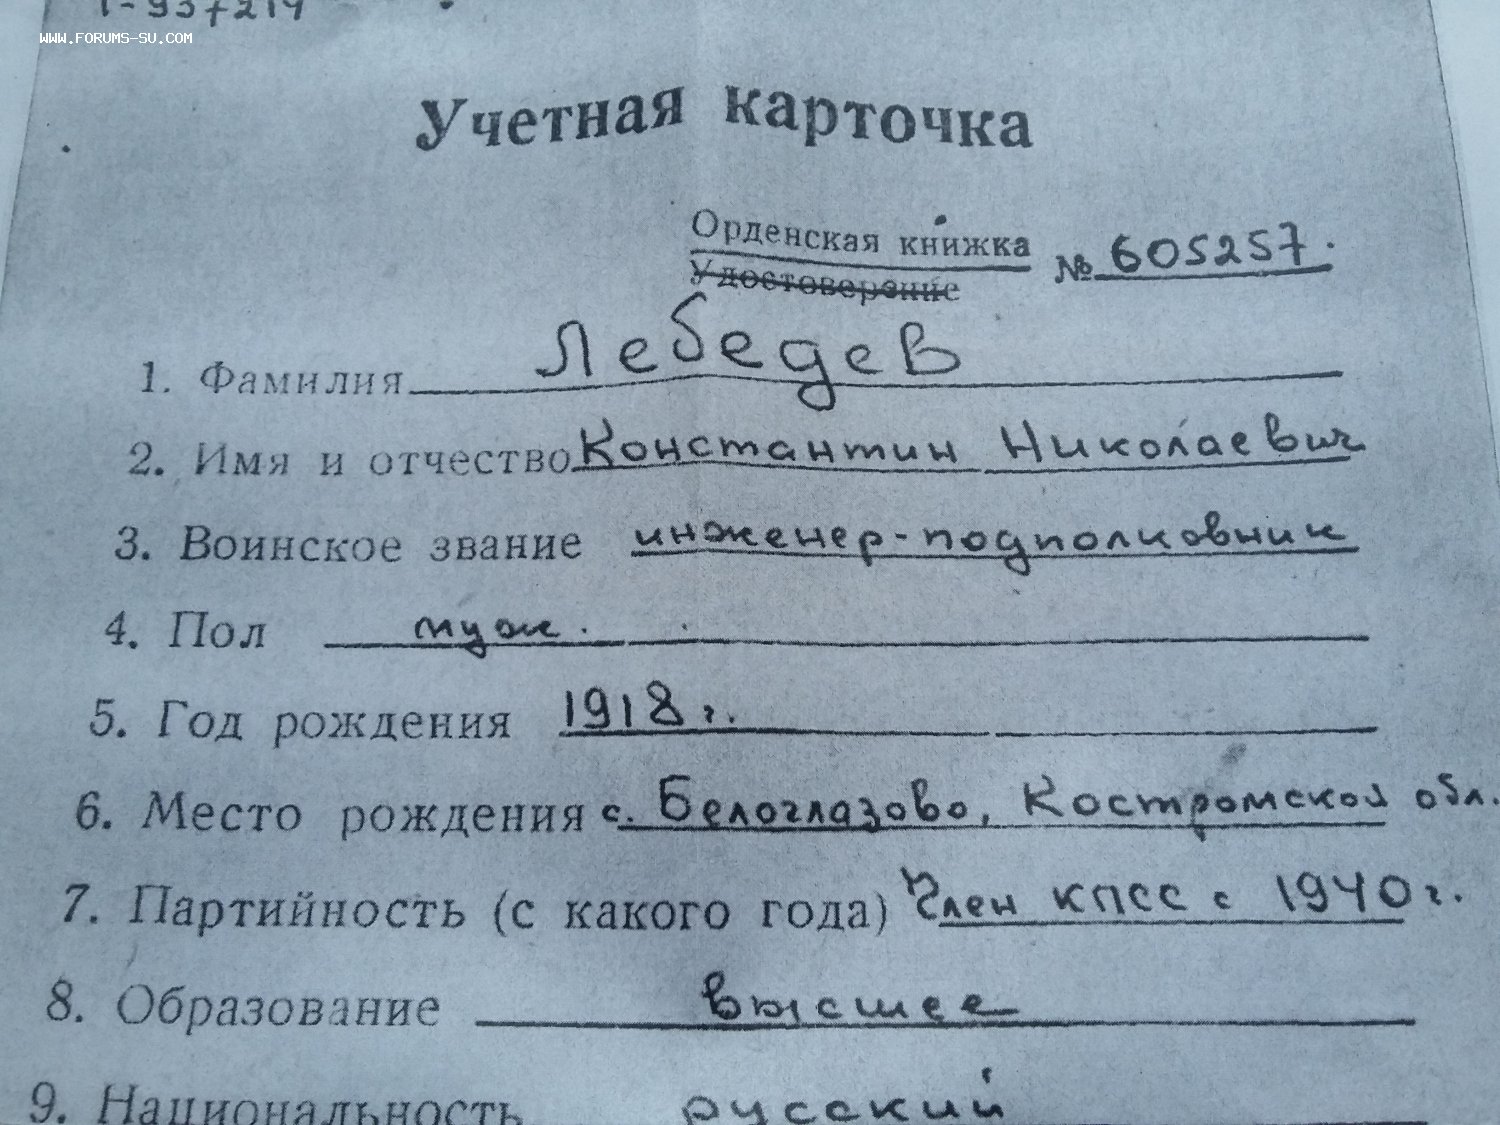 Т-937214
WWW.FORUMS-SU.COM
Учетная карточка
Орденская книжка
Удостоверение
№ 605257.
1. Фамилия Лебедев
2. Имя и отчество Константин Николаевич
3. Воинское звание инженер-подполковник
4. Пол муж.
5. Год рождения 1918 г.
6. Место рождения с. Белоглазово, Костромской обл.
7. Партийность (с какого года) Член КПСС с 1940 г.
8. Образование высшее
9. Национальность русский